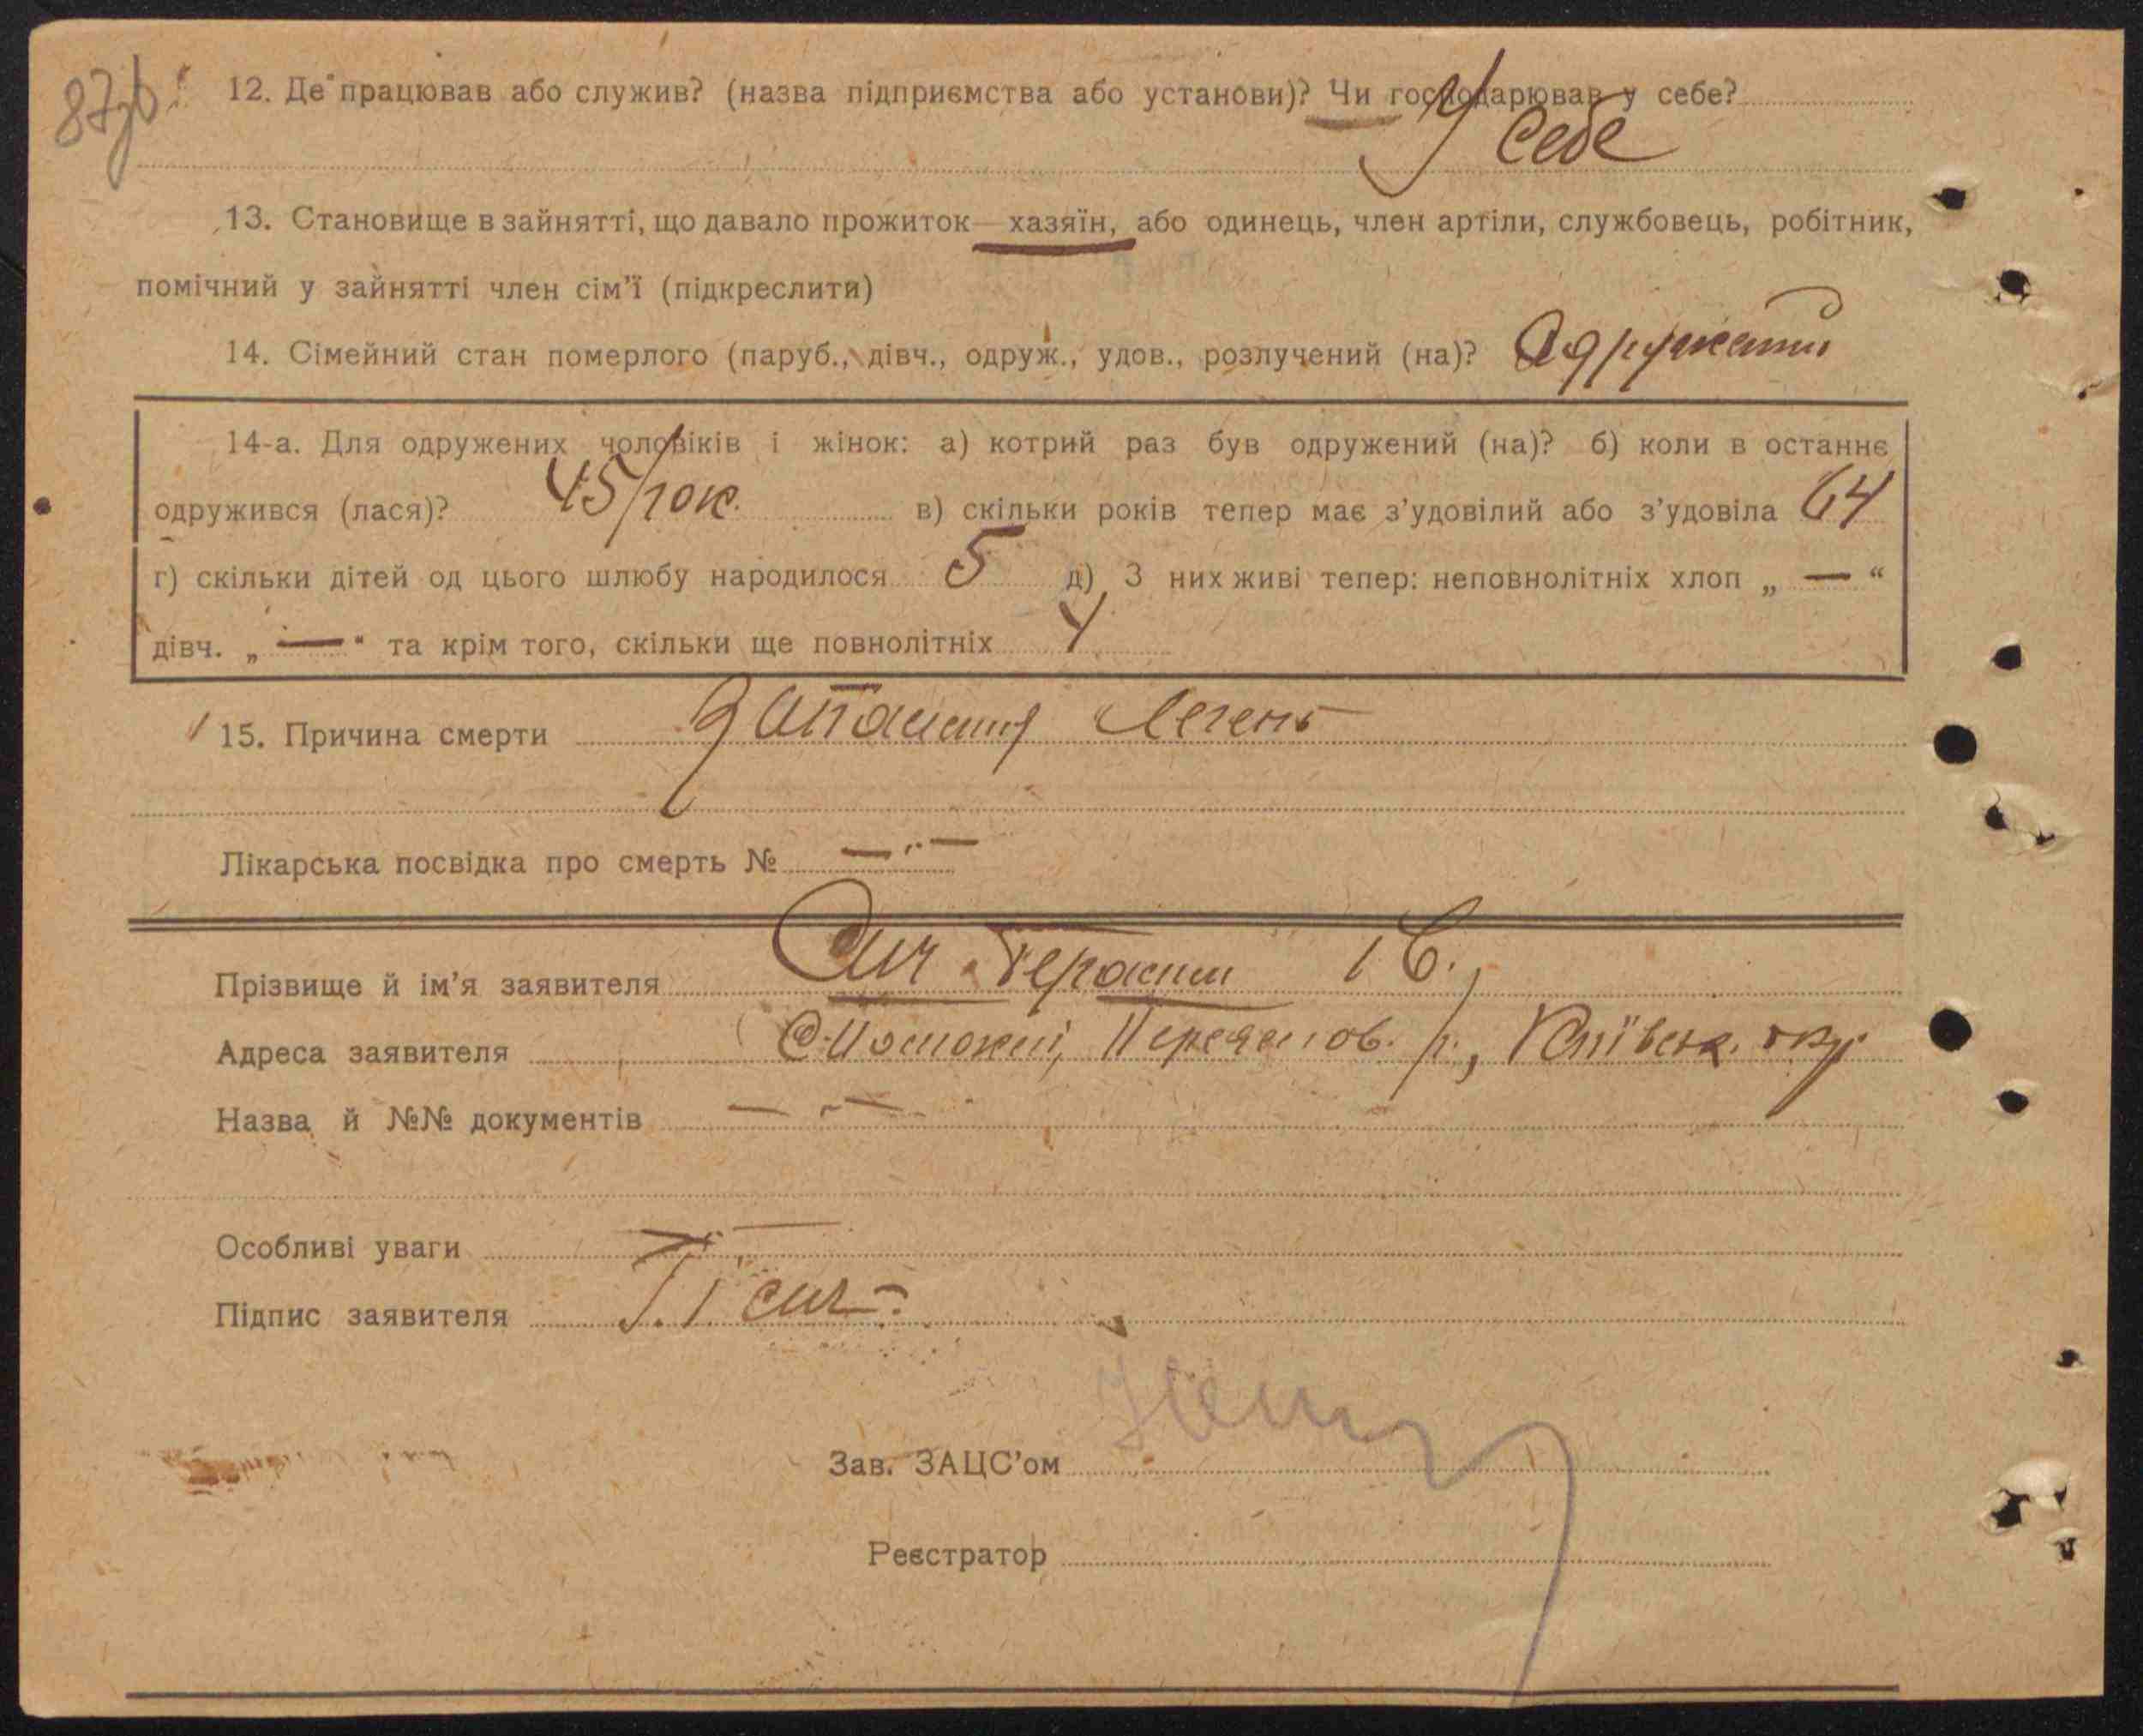 87зв.
12. Де працював або служив? (назва підприємства або установи)? Чи господарював у себе?
У себе
13. Становище в зайнятті, що давало прожиток — хазяїн, або одинець, член артіли, службовець, робітник,
помічний у зайнятті член сім'ї (підкреслити)
14. Сімейний стан померлого (паруб., дівч., одруж., удов., розлучений (на)?
14-а. Для одружених чоловіків і жінок: а) котрий раз був одружений (на)? б) коли в останнє
одружився (лася)? 45/рок. в) скільки років тепер має з'удовілий або з'удовіла 64
г) скільки дітей од цього шлюбу народилося 5 д) З них живі тепер: неповнолітніх хлоп „ — “
дівч. „ — “ та крім того, скільки ще повнолітніх 4
15. Причина смерти Запалення легень
Лікарська посвідка про смерть № — " —
Прізвище й ім'я заявителя Сич Герасим І Є.
Адреса заявителя Переяслов. р., Київськ. окр.
Назва й №№ документів — " —
Особливі уваги — " —
Підпис заявителя Г. І Сич
Зав. ЗАЦС'ом
Реєстратор